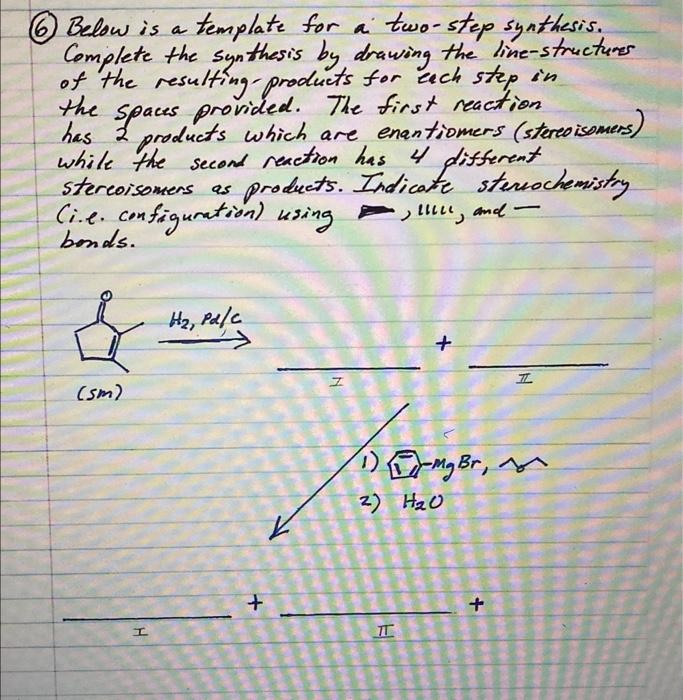 6 Below is a template for a two-step synthesis.
Complete the synthesis by drawing the line-structures
of the resulting-products for each step in
the spaces provided. The first reaction
has 2 products which are enantiomers (stereoisomers)
while the second reaction has 4 different
stereoisomers as products. Indicate stereochemistry
(i.e. configuration) using , , and —
bonds.
O
H2, Pd/C
+
(sm)
I
II
1) -MgBr, O
2) H2O
+
+
I
II